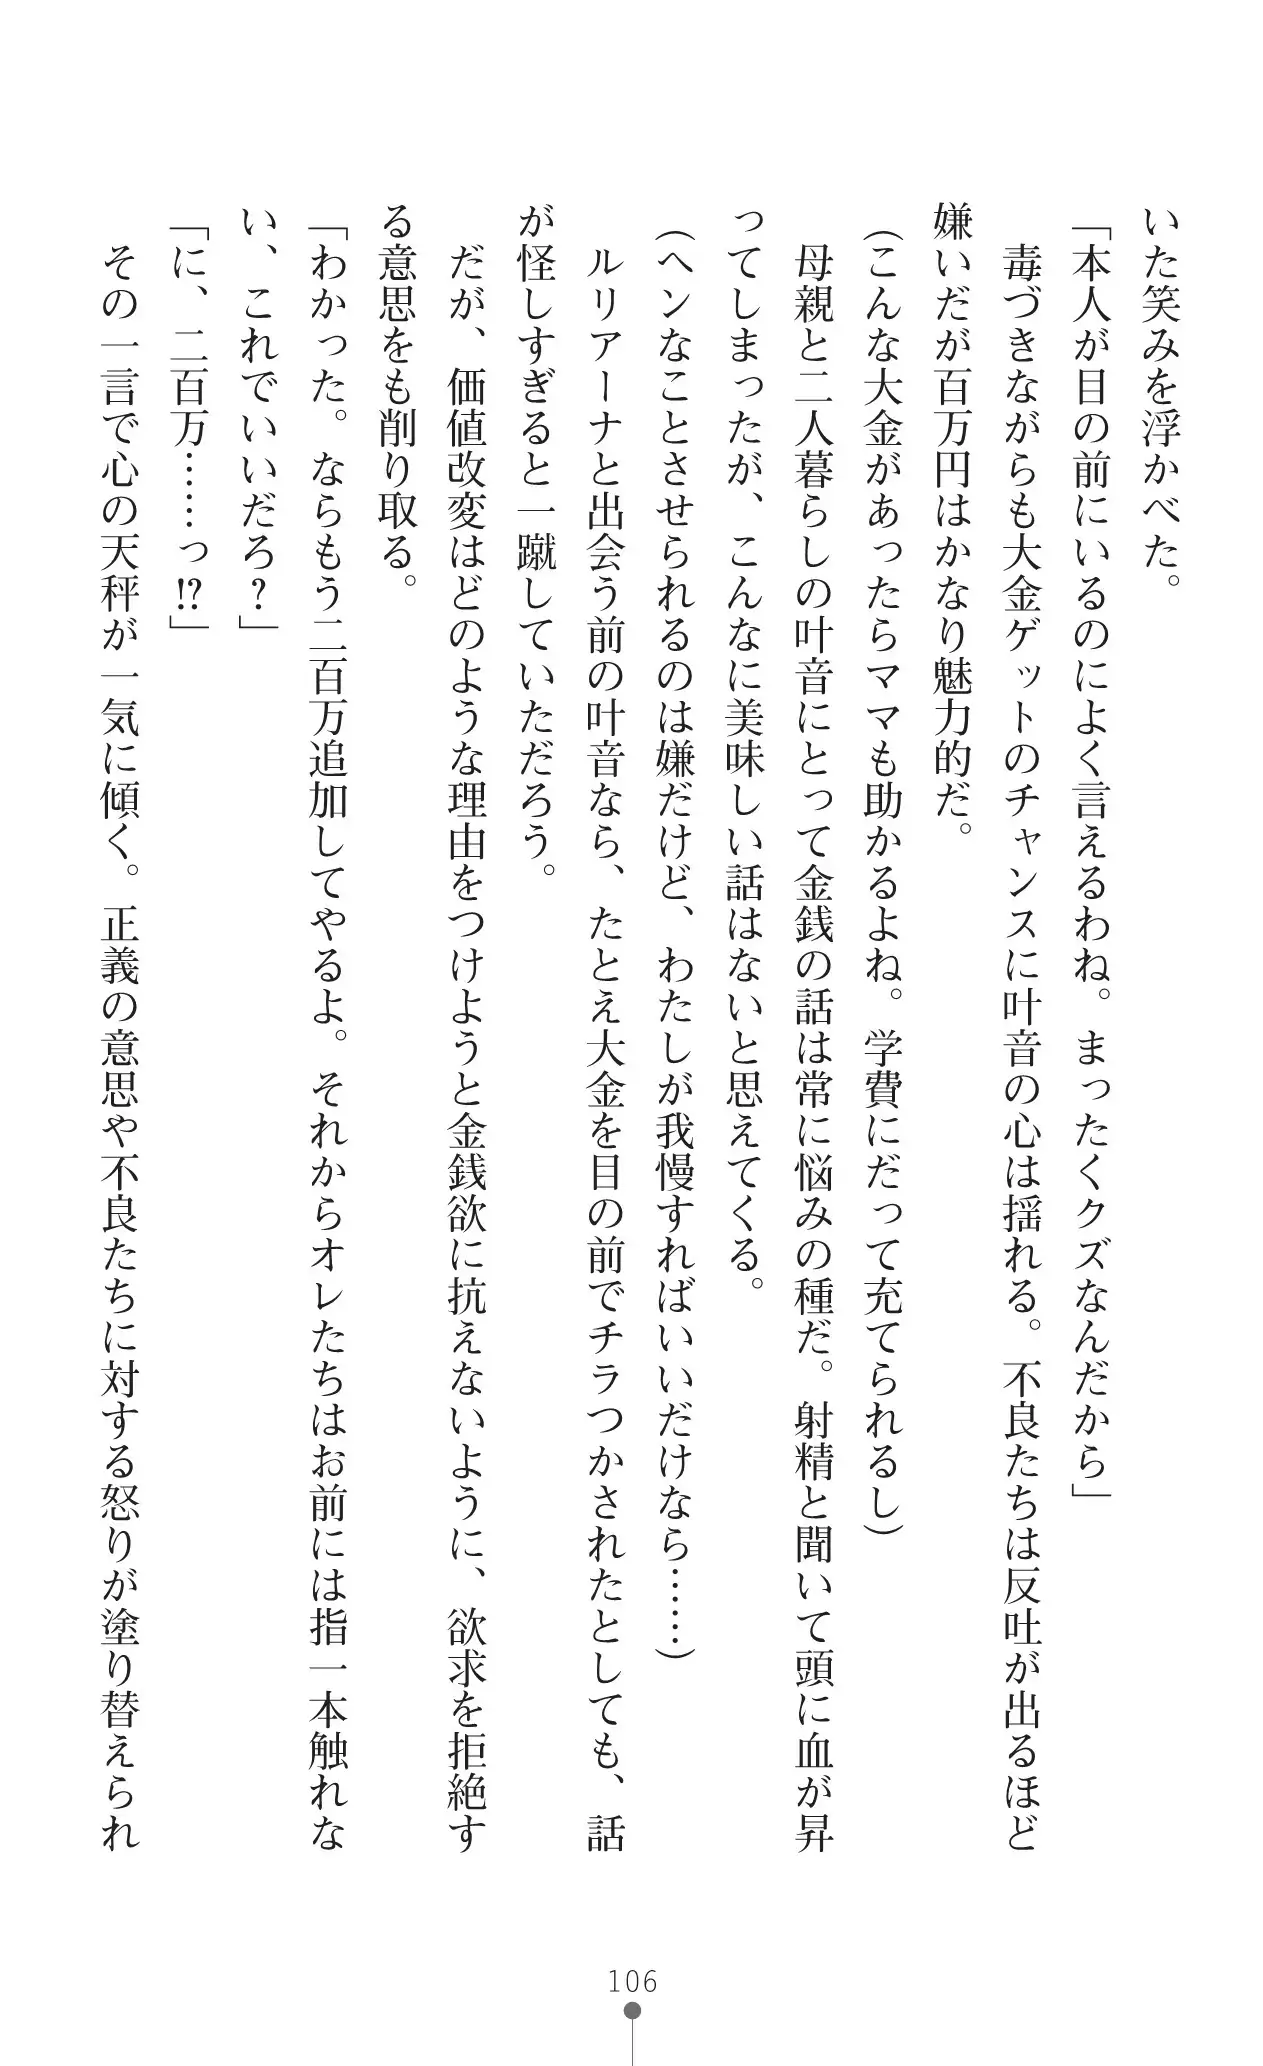 いた笑みを浮かべた。
「本人が目の前にいるのによく言えるわね。まったくクズなんだから」
　毒づきながらも大金ゲットのチャンスに叶音の心は揺れる。不良たちは反吐が出るほど
嫌いだが百万円はかなり魅力的だ。
（こんな大金があったらママも助かるよね。学費にだって充てられるし）
　母親と二人暮らしの叶音にとって金銭の話は常に悩みの種だ。射精と聞いて頭に血が昇
ってしまったが、こんなに美味しい話はないと思えてくる。
（ヘンなことさせられるのは嫌だけど、わたしが我慢すればいいだけなら……）
　ルリアーナと出会う前の叶音なら、たとえ大金を目の前でチラつかされたとしても、話
が怪しすぎると一蹴していただろう。
　だが、価値改変はどのような理由をつけようと金銭欲に抗えないように、欲求を拒絶す
る意思をも削り取る。
「わかった。ならもう二百万追加してやるよ。それからオレたちはお前には指一本触れな
い、これでいいだろ？」
「に、二百万……っ!?」
　その一言で心の天秤が一気に傾く。正義の意思や不良たちに対する怒りが塗り替えられ
106